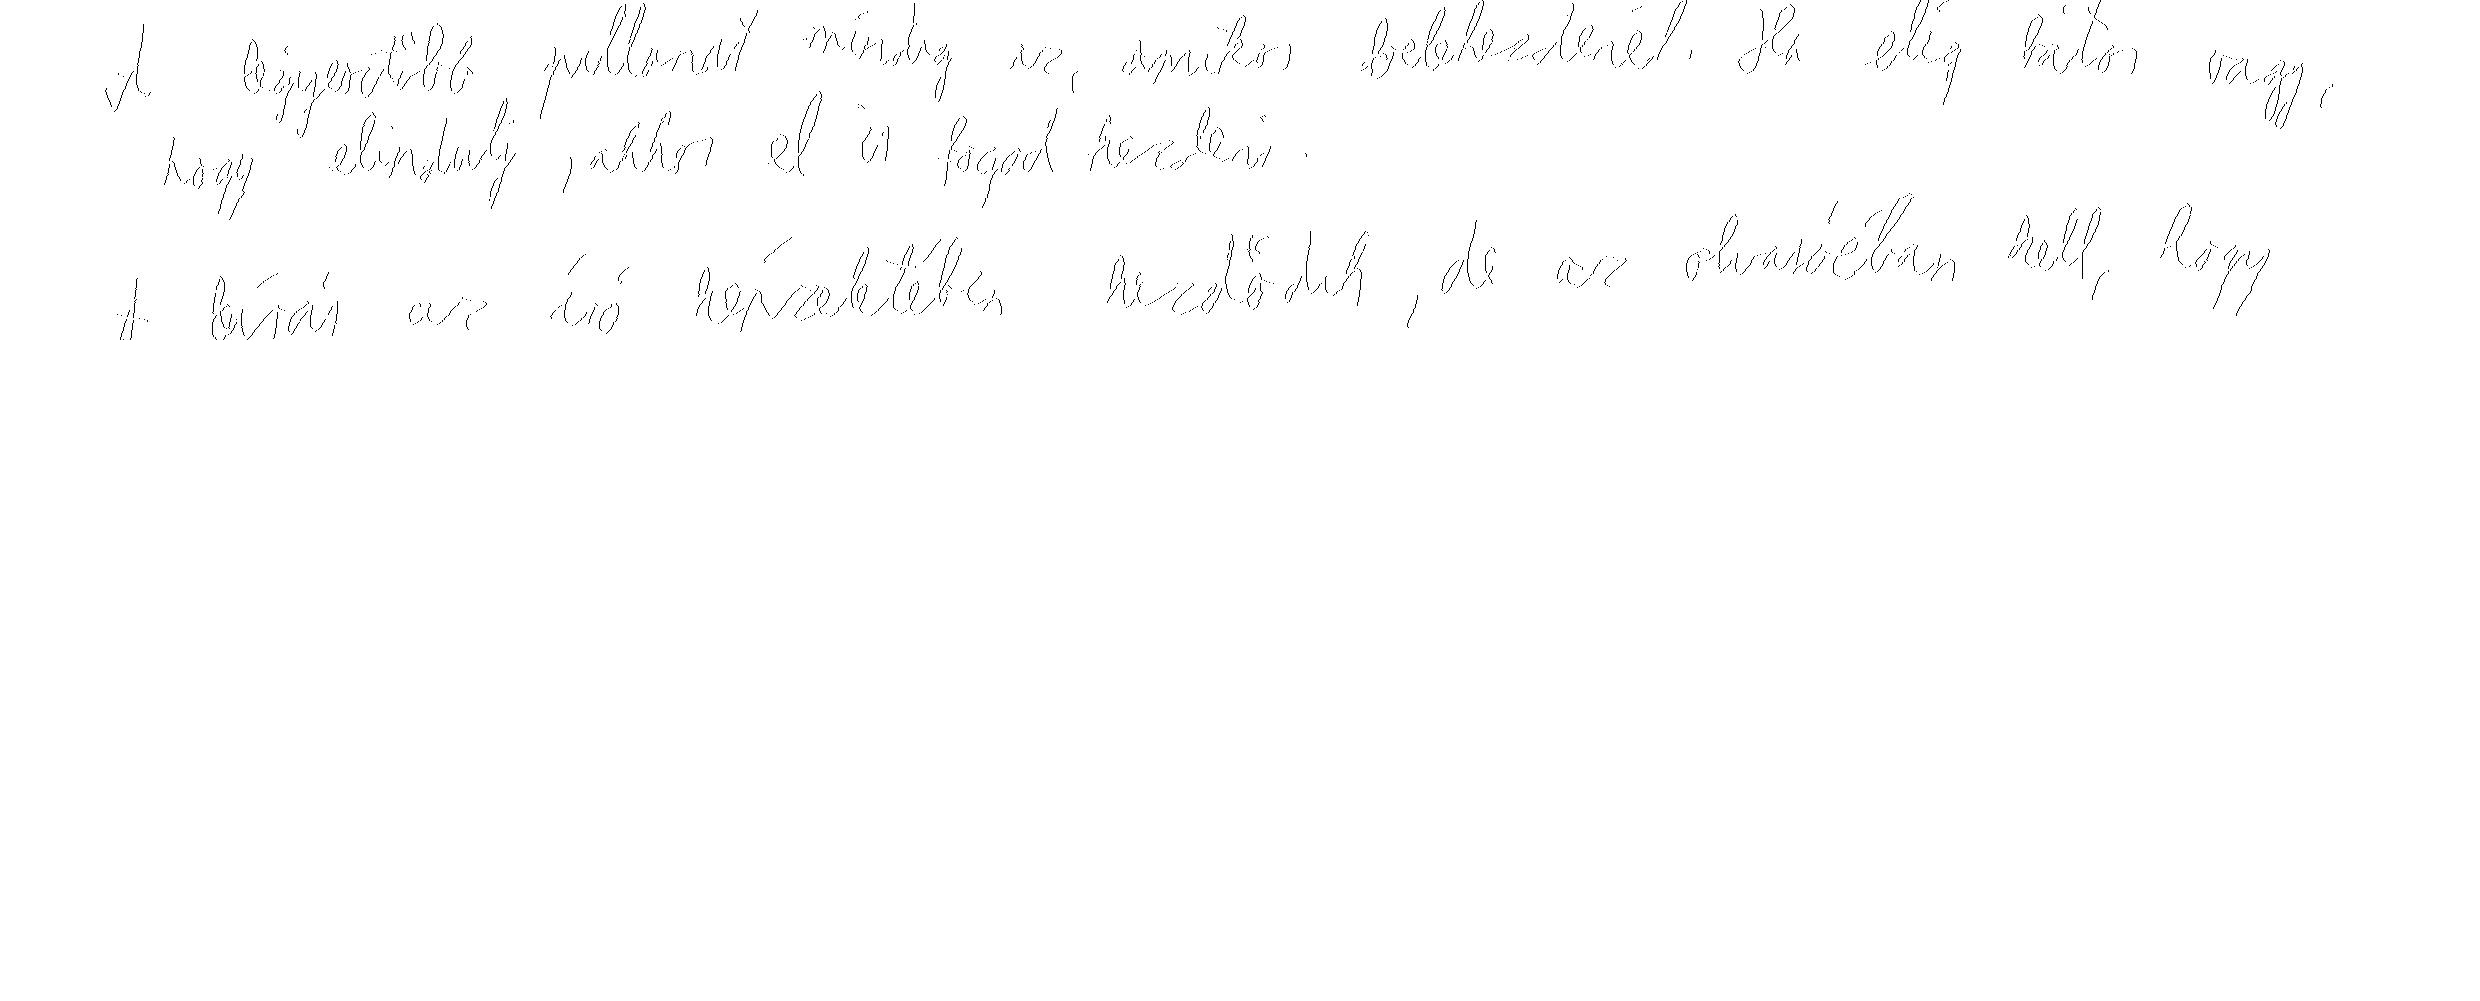 A legijesztőbb pillanat mindig az, amikor belekezdenél. Ha elég bátor vagy,
hogy elindulj, akkor el is fogod kezdeni.
A leírás az író képzeletében kezdődik, de az olvasóéban kell, hogy